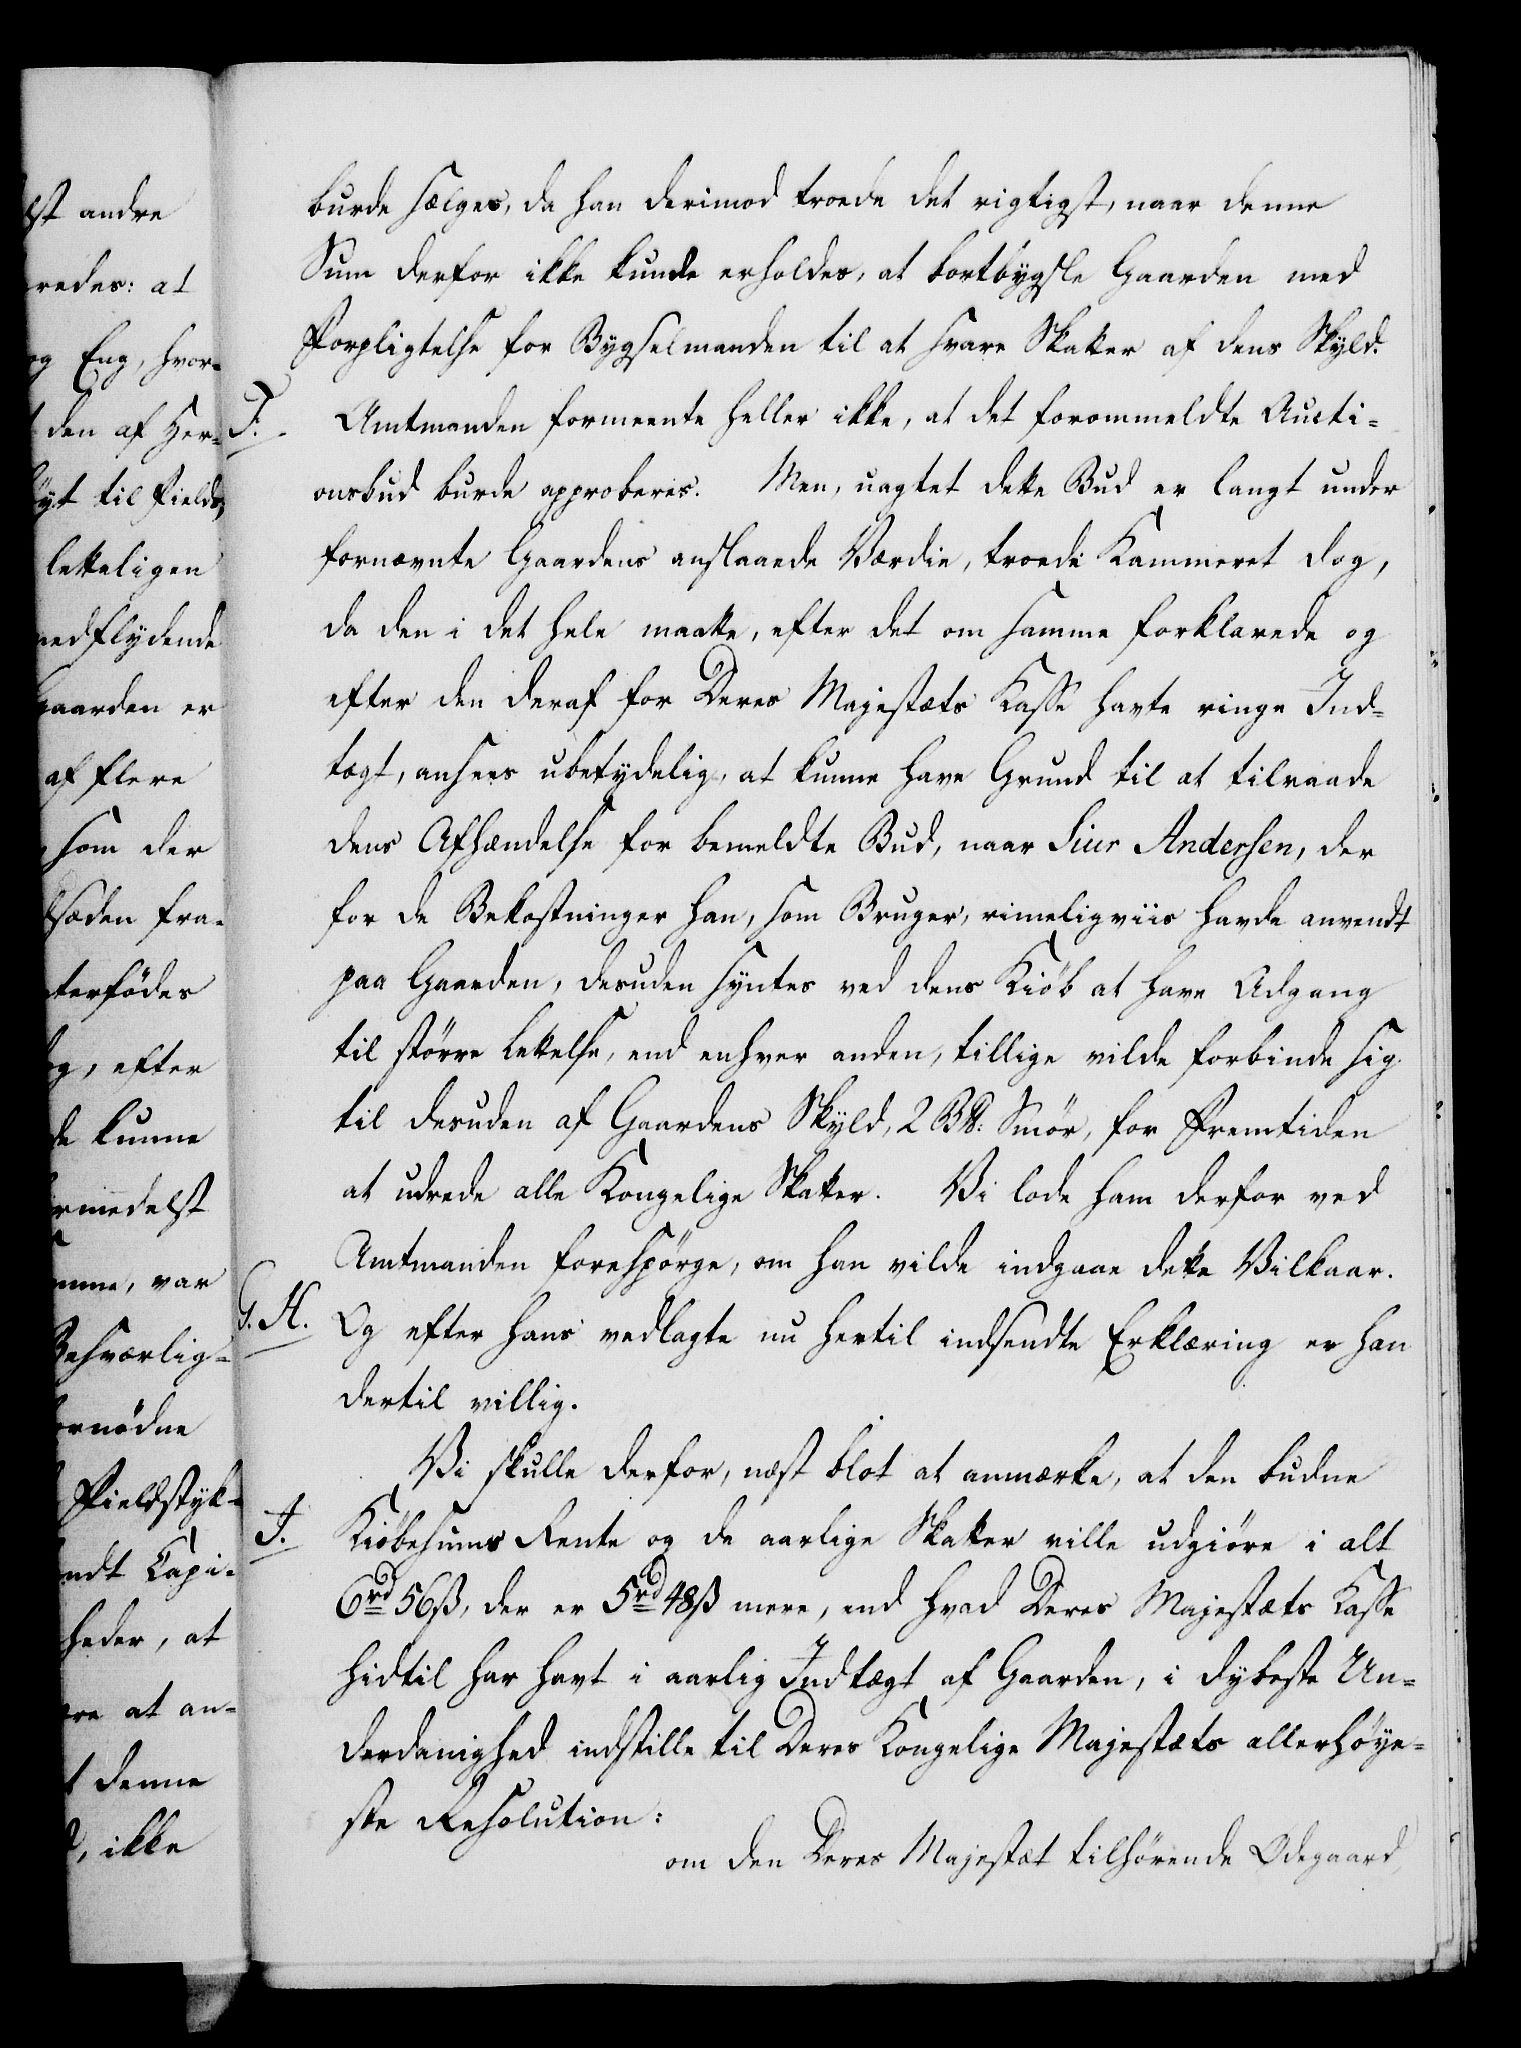 lst andre
redes: at
og Eng, hvor-
den af Her-
öyt til Fields,
letteligen
nedflydende
Gaarden er
af flere
som der
lsæden fra-
terfödes
og, efter
de kunne
rmedelst
mme, var
Besværlig-
ornödne
Fieldstyk-
endt Capi-
heder, at
ere at an-
t denne
, ikke
burde sælges, da han derimod troede det rigtigst, naar denne
Sum derfor ikke kunde erholdes, at bortbygsle Gaarden med
Forpligtelse for Bygselmanden til at svare Skatter af dens Skyld.
F. Amtmanden formeente heller ikke, at det forommeldte Aucti-
onsbud burde approberes. Men, uagtet dette Bud er langt under
fornævnte Gaardens anslaaede Værdie, troede Kammeret dog,
da den i det hele maatte, efter det om samme forklarede og
efter den deraf for Deres Majestæts Kasse havte ringe Ind-
tægt, ansees ubetydelig, at kunne have Grund til at tilraade
dens Afhændelse for bemeldte Bud, naar Siur Andersen, der
for de Bekostninger han, som Bruger, rimeligviis havde anvendt
paa Gaarden, desuden syntes ved dens Kiöb at have Adgang
til större Lettelse, end enhver anden, tillige vilde forbinde sig
til desuden af Gaardens Skyld, 2 Bß: Smör, for Fremtiden
at udrede alle Kongelige Skatter. Vi lode ham derfor ved
Amtmanden forespörge, om han vilde indgaae dette Vilkaar.
G. H. Og efter hans vedlagte nu hertil indsendte Erklæring er han
dertil villig.
Vi skulle derfor, næst blot at anmærke, at den budne
J. Kiöbesums Rente og de aarlige Skatter ville udgiöre i alt
6rd 56ß, der er 5rd 48ß mere, end hvad Deres Majestæts Kasse
hidtil har havt i aarlig Indtægt af Gaarden, i dybeste Un-
derdanighed indstille til Deres Kongelige Majestæts allerhöye-
ste Resolution:
om den Deres Majestæt tilhörende Ödegaard,